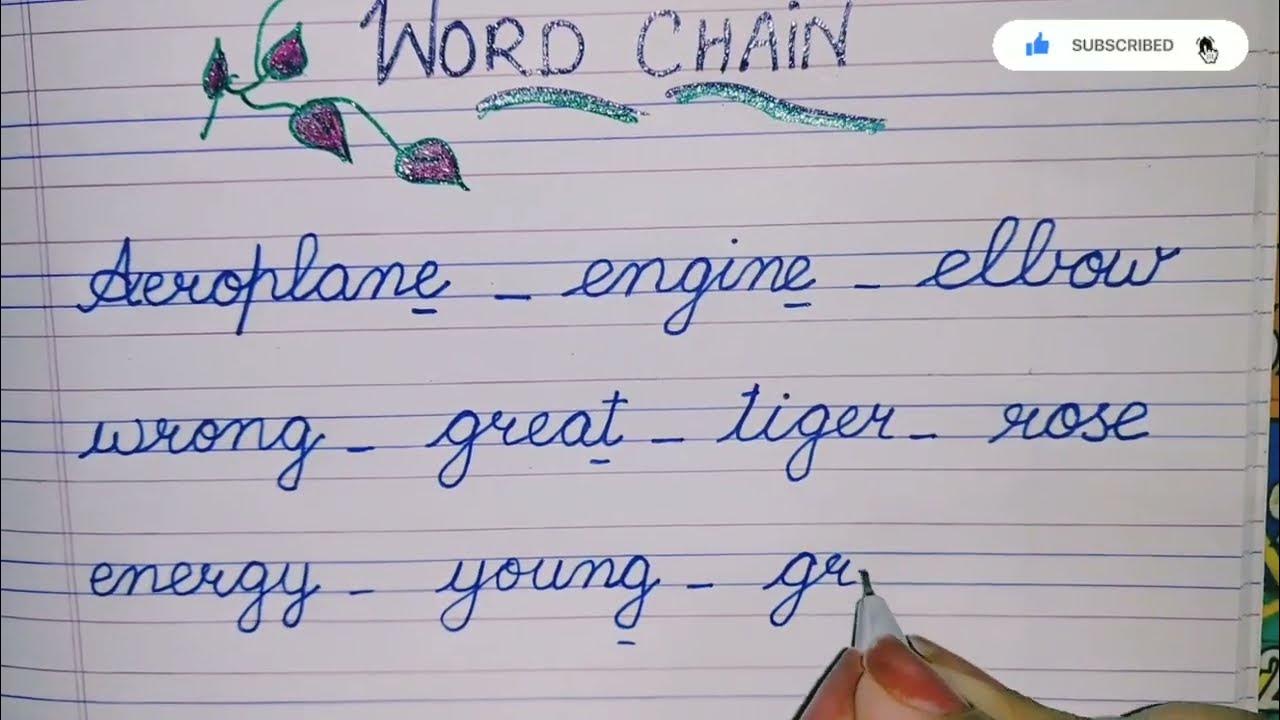 WORD CHAIN
SUBSCRIBED
Aeroplane - engine - elbow
wrong - great - tiger - rose
energy - young - gr